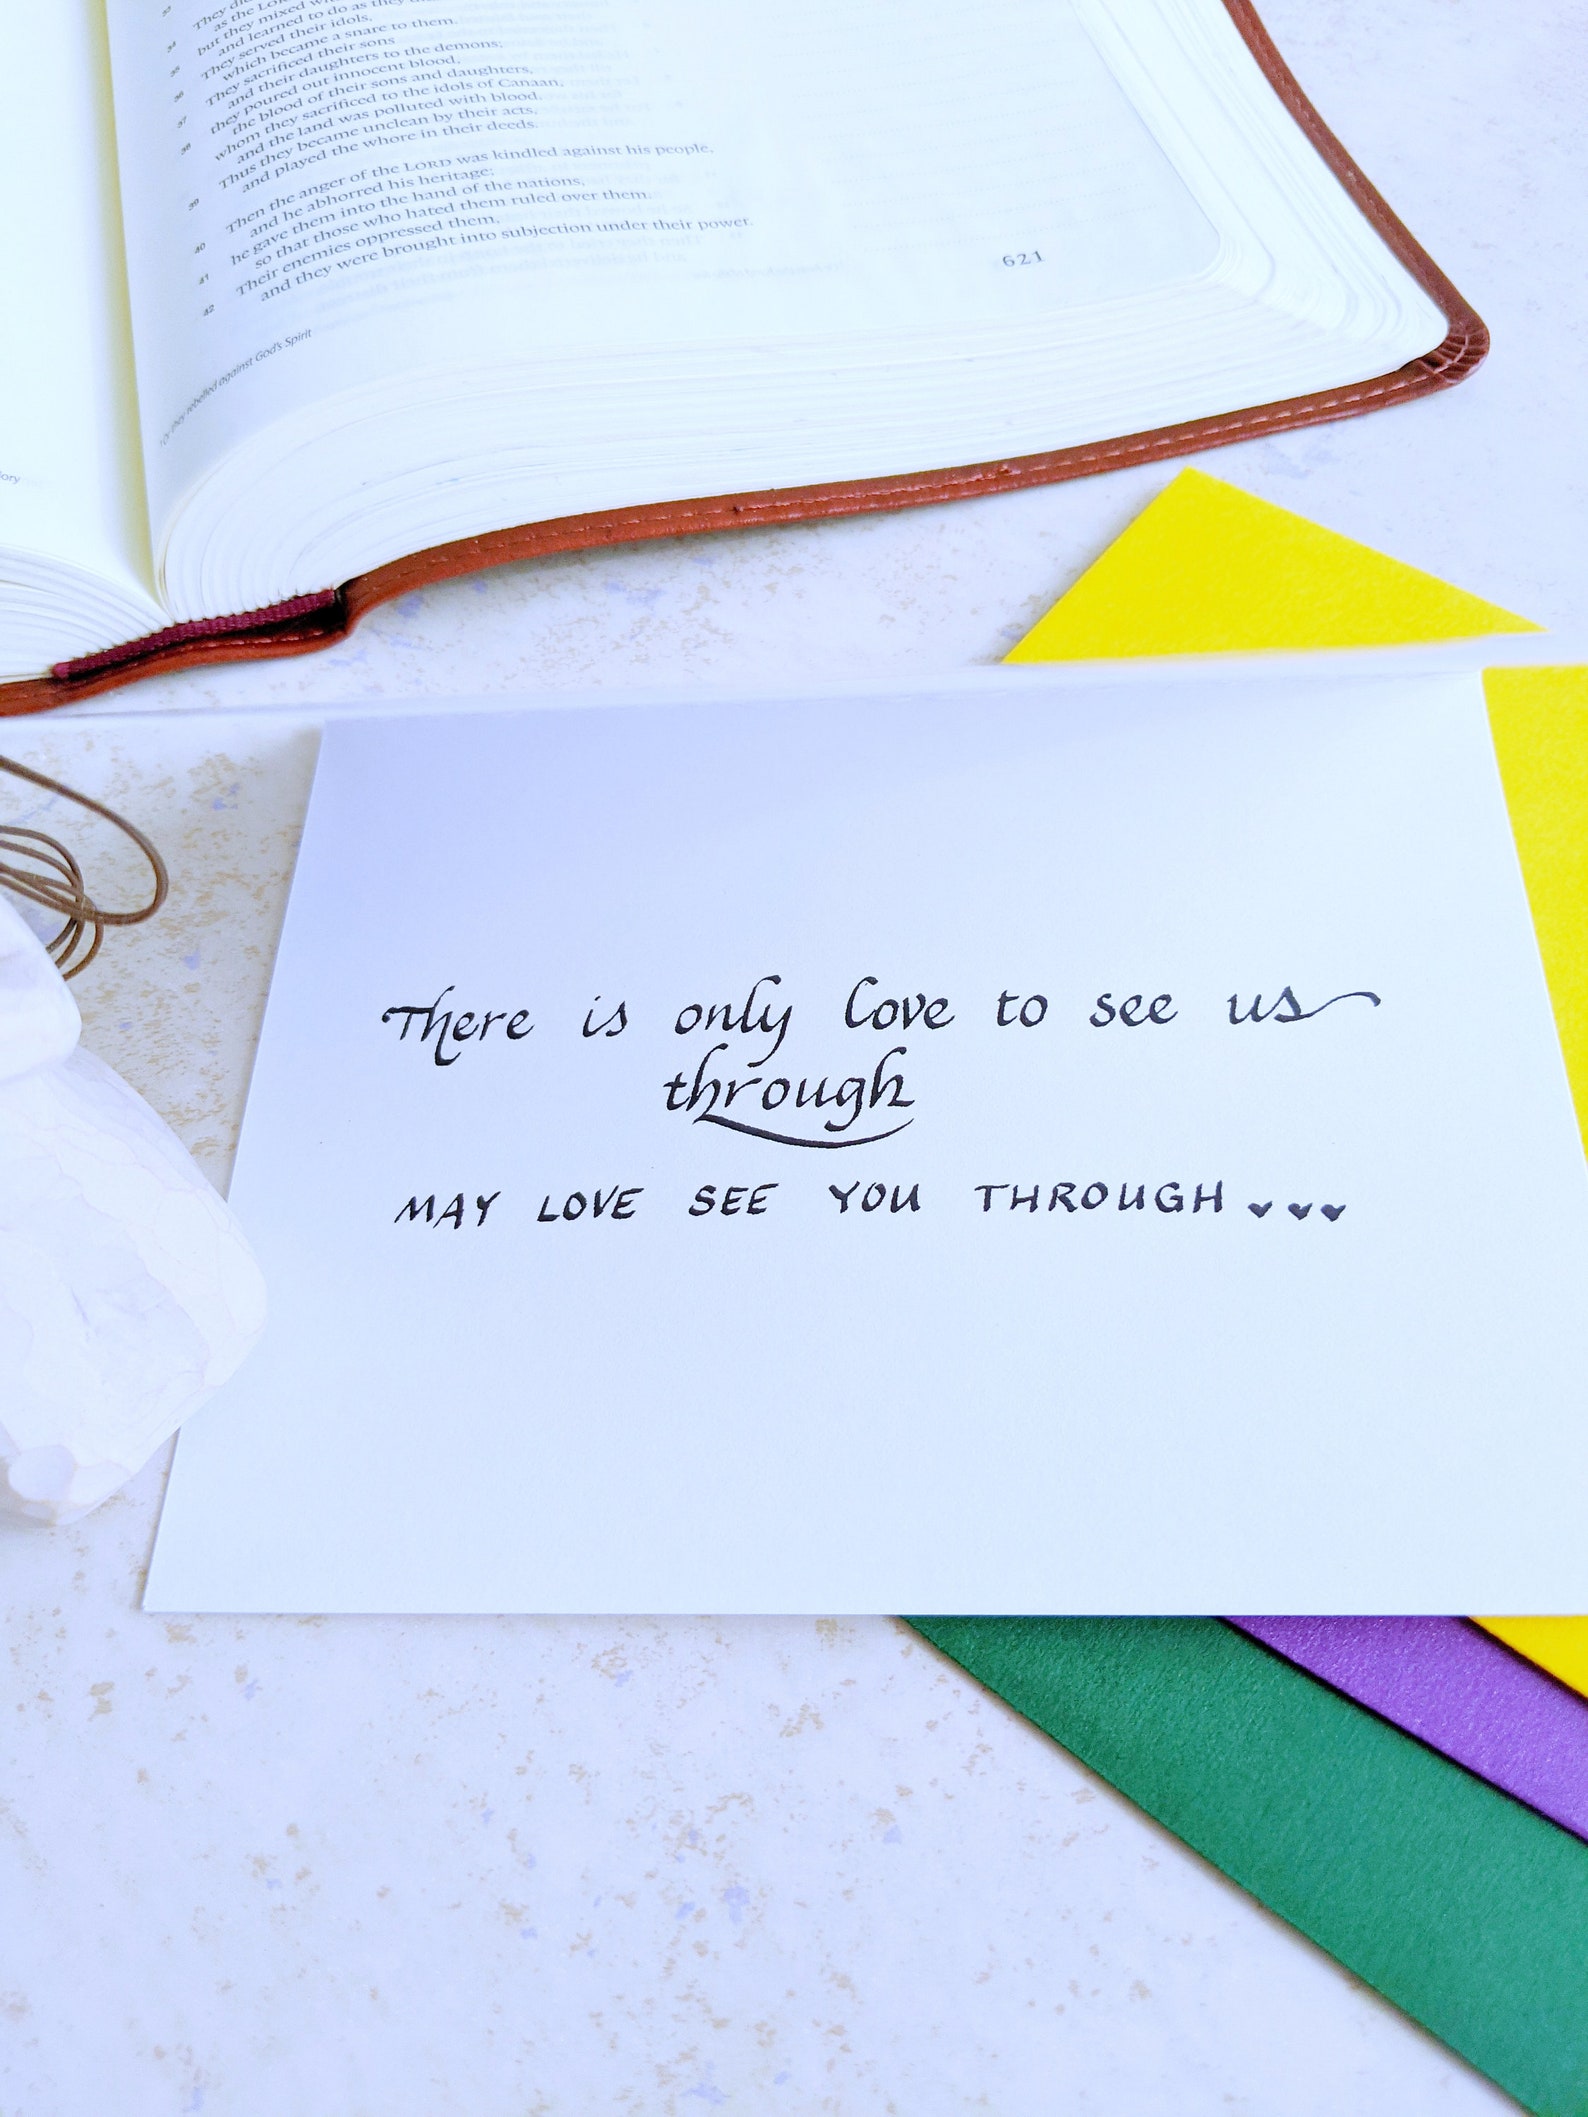 They
as the LORD
but they mixed with
and learned to do as they
They served their idols,
which became a snare to them.
They sacrificed their sons
and their daughters to the demons;
they poured out innocent blood,
the blood of their sons and daughters,
whom they sacrificed to the idols of Canaan,
and the land was polluted with blood.
Thus they became unclean by their acts,
and played the whore in their deeds.
Then the anger of the LORD was kindled against his people,
and he abhorred his heritage;
he gave them into the hand of the nations,
so that those who hated them ruled over them.
Their enemies oppressed them,
and they were brought into subjection under their power.
35
36
37
38
39
40
41
42
621
they rebelled against God's Spirit
There is only love to see us
through
MAY LOVE SEE YOU THROUGH